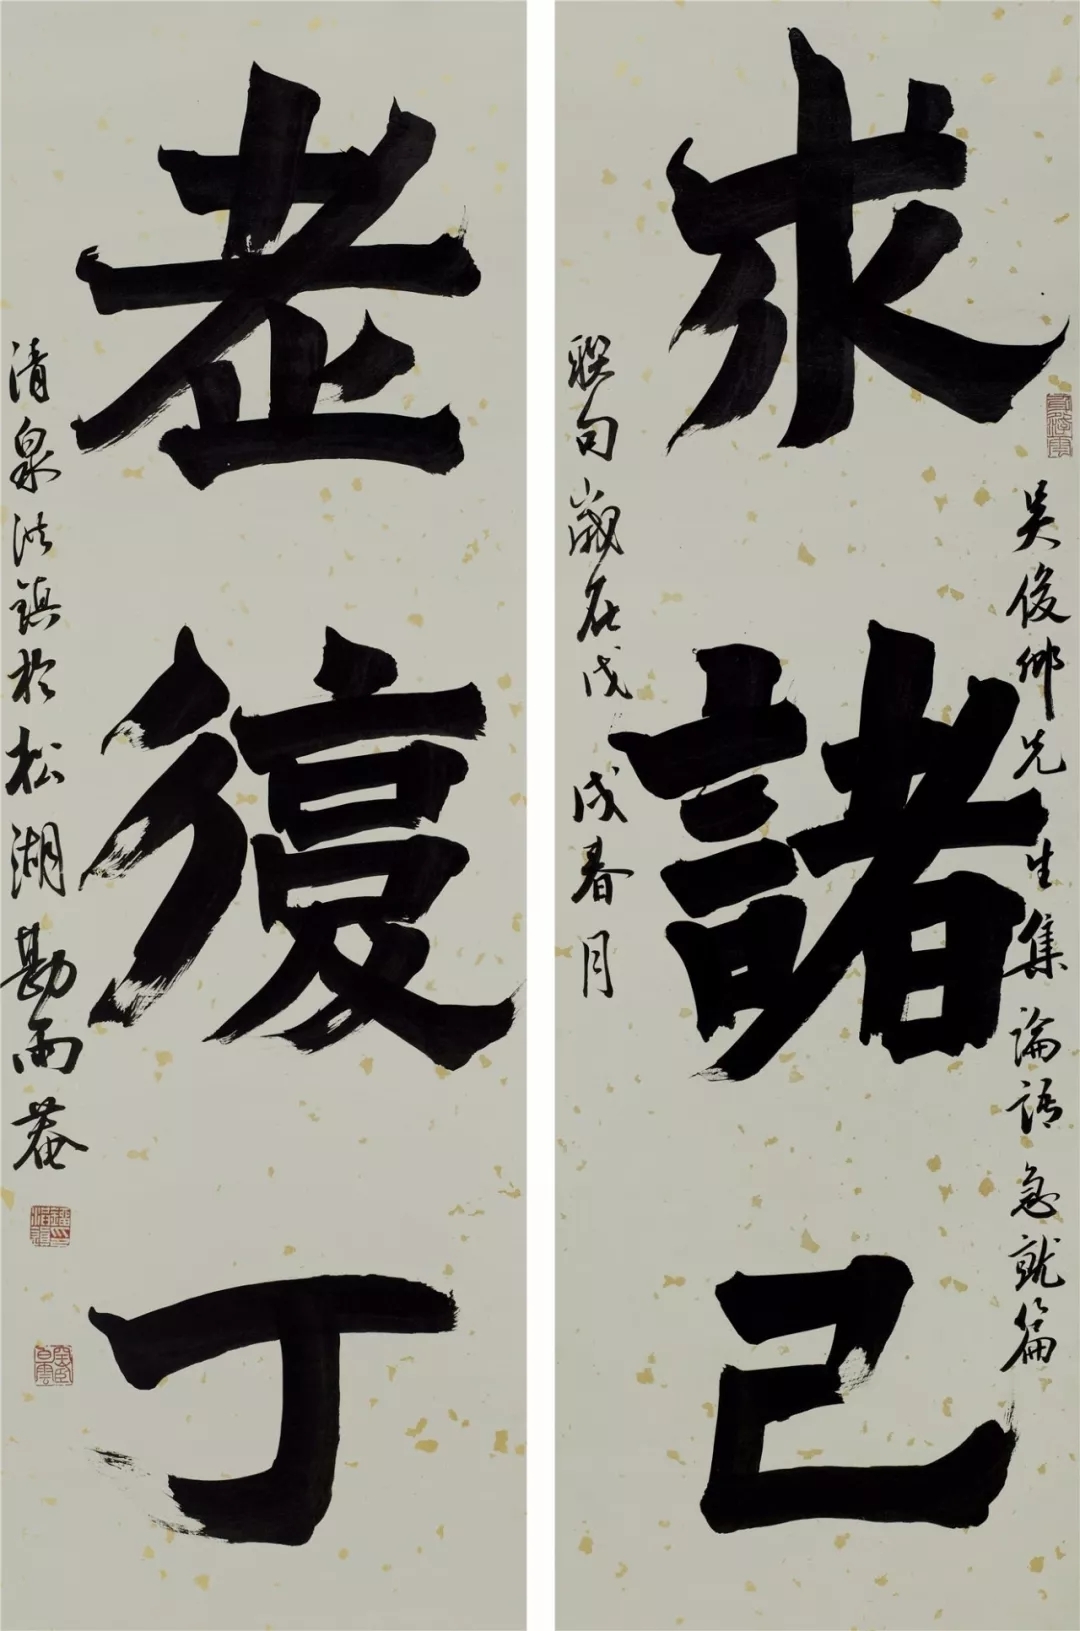 吳俊卿先生集論語急就篇
求諸己
聯句歲在戊戌春月
老復丁
清泉洪鎮於松湖勘雨菴